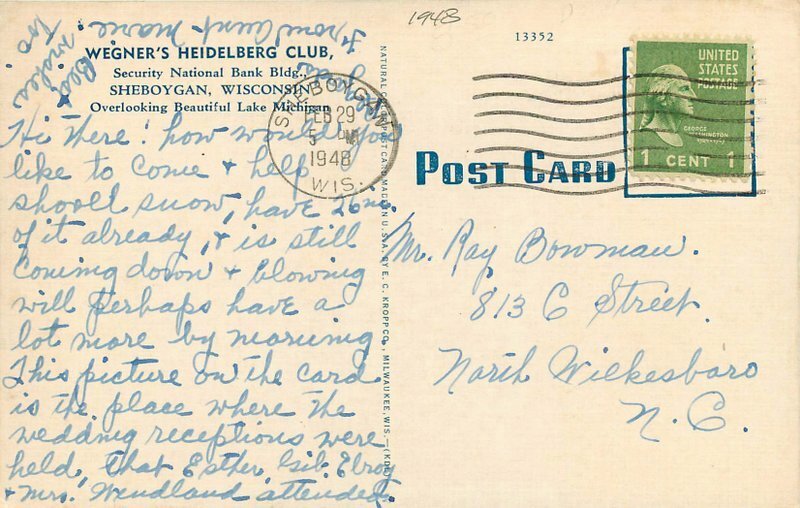 1948
13352
WEGNER'S HEIDELBERG CLUB,
Security National Bank Bldg.,
SHEBOYGAN, WISCONSIN
Overlooking Beautiful Lake Michigan
Hi There! how would you
like to come & help
shovell snow, have 26 ins.
of it already, & is still
Coming down & blowing
will perhaps have a
lot more by morning
This picture on the card
is the place where the
wedding receptions were
held, that Esther, Gib, Elroy
& Mrs. Wendland attended.
Best wishes to
from Aunt Marie
SHEBOYGAN
FEB 29
5 PM
1948
WIS.
UNITED
STATES
POSTAGE
GEORGE
WASHINGTON
1 CENT 1
POST CARD
Mr. Ray Bowman.
813 C Street.
North Wilkesboro
N.C.